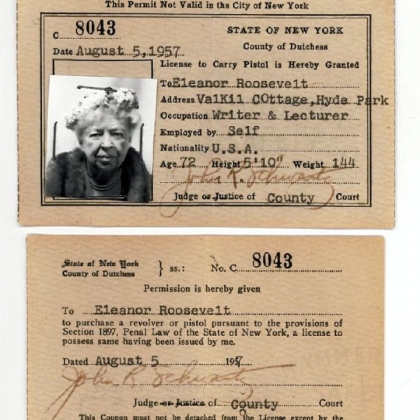 This Permit Not Valid in the City of New York
C 8043
STATE OF NEW YORK
Date August 5,1957
County of Dutchess
License to Carry Pistol is Hereby Granted
To Eleanor Roosevelt
Address Valkil COttage,Hyde Park
Occupation Writer & Lecturer
Employed by Self
Nationality U.S.A.
Age 72 Height 5'10" Weight 144
John R. Schwartz
Judge or Justice of County Court
State of New York
County of Dutchess } ss.: No. C 8043
Permission is hereby given
To Eleanor Roosevelt
to purchase a revolver or pistol pursuant to the provisions of
Section 1897, Penal Law of the State of New York, a license to
possess same having been issued by me.
Dated August 5 1957
John R. Schwartz
Judge or Justice of County Court
This Coupon must not be detached from the License except by the